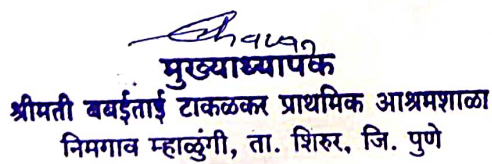 मुख्याध्यापक
श्रीमती बबईताई टाकळकर प्राथमिक आश्रमशाळा
निमगाव म्हाळुंगी, ता. शिरुर, जि. पुणे